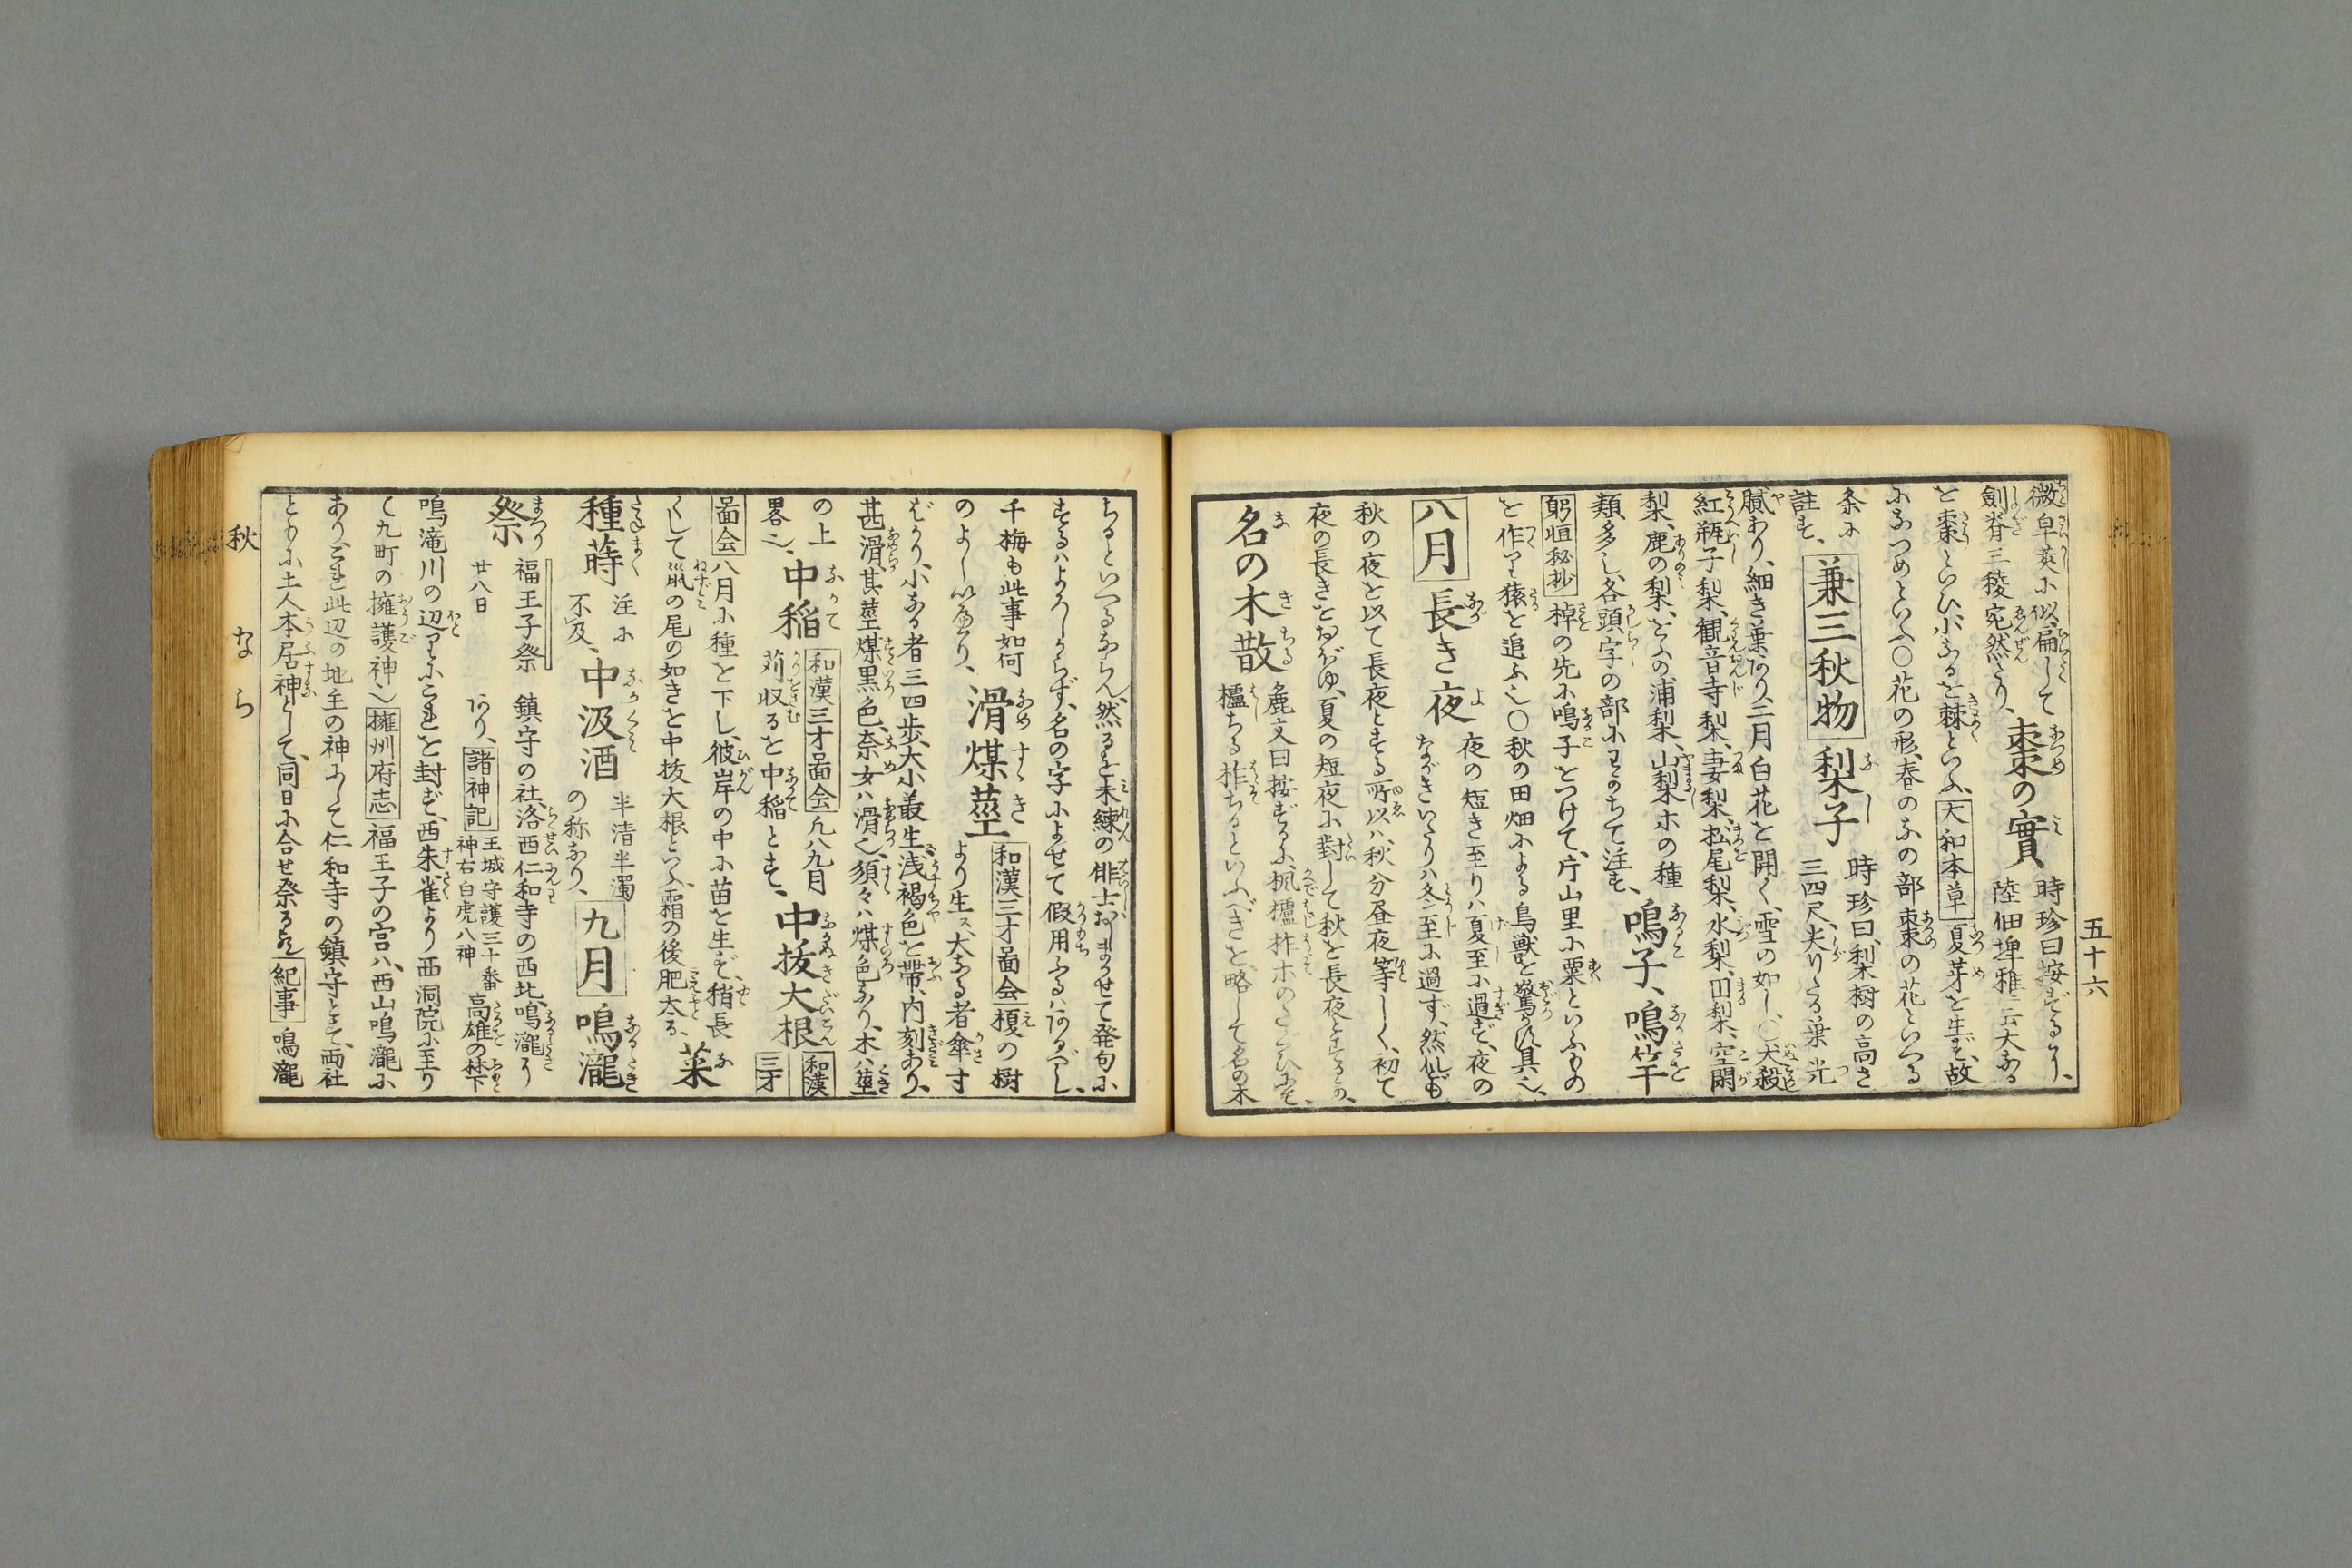 五十六
微皁莢に似、扁して
劍脊三稜宛然たり、
棗の實
時珍曰按ずるに、
陸佃埤雅云大なる
を棗といひ、小なるを棘といふ、大和本草夏芽を生ず、故
になつめといふ〇花の形、春のなの部棗の花といへる
条に
註す、
兼三秋物
梨子
時珍曰、梨樹の高さ
三四尺、尖りたる葉光
膩あり、細き葉あり、二月白花を開く、雪の如し、〇犬殺
紅瓶子梨、観音寺梨、妻梨、松尾梨、水梨、円梨、空閑
梨、鹿の梨、との浦梨、山梨ホの種
類多し、各頭字の部にわかちて注す、
鳴子、鳴竿
躬恒秘抄棹の先に鳴子をつけて、片山里に粟といふもの
を作りて猿を追ふ也〇秋の田畑による鳥獣を驚かす具也、
八月
長き夜
夜の短き至りハ夏至に過ず、夜の
ながきいたりハ冬至に過ず、然れども
秋の夜を以て長夜とする所以ハ、秋分昼夜等しく、初て
夜の長きをおぼゆ、夏の短夜に對して秋を長夜とするか、
名の木散
麁文曰按ずるに、楓櫨柞ホのたぐひにて、
櫨ちる柞ちるといふべきを、略して名の木
ちるといへるならん、然るを未練の俳士おしまかせて発句に
するハよろしからず、名の字によせて假用るハあるべし、
千梅も此事如何
のよしいへり、
滑煤莖
和漢三才啚会榎の樹
より生ス、大なる者傘寸
ばかり、小なる者三四歩、大小叢生浅褐色を帯、内刻あり、
甚滑、其莖煤黒色、奈女ハ滑也、須々ハ煤色なり、木ハ莖
の上
畧也、
中稲
和漢三才啚会凡八九月
苅収るを中稲とす、
中抜大根
和漢
三才
啚会八月に種を下し、彼岸の中に苗を生ず、稍長
くして鼡の尾の如きを中抜大根といふ、霜の後肥太る、
菜
種蒔
注に
不及、
中汲酒
半清半濁
の称なり、
九月
鳴瀧
祭
福王子祭
廿八日
鎮守の社、洛西仁和寺の西北、鳴瀧に
あり、諸神記王城守護三十番
神右白虎八神
高雄の梺下
鳴滝川の辺りにこれを封ず、西朱雀より西洞院に至り
く九町の擁護神也擁州府志福王子の宮ハ、西山鳴瀧に
あり、これ此辺の地主の神にして仁和寺の鎮守とす、両社
ともに土人本居神として、同日に合せ祭る也、紀事鳴瀧
秋
なら